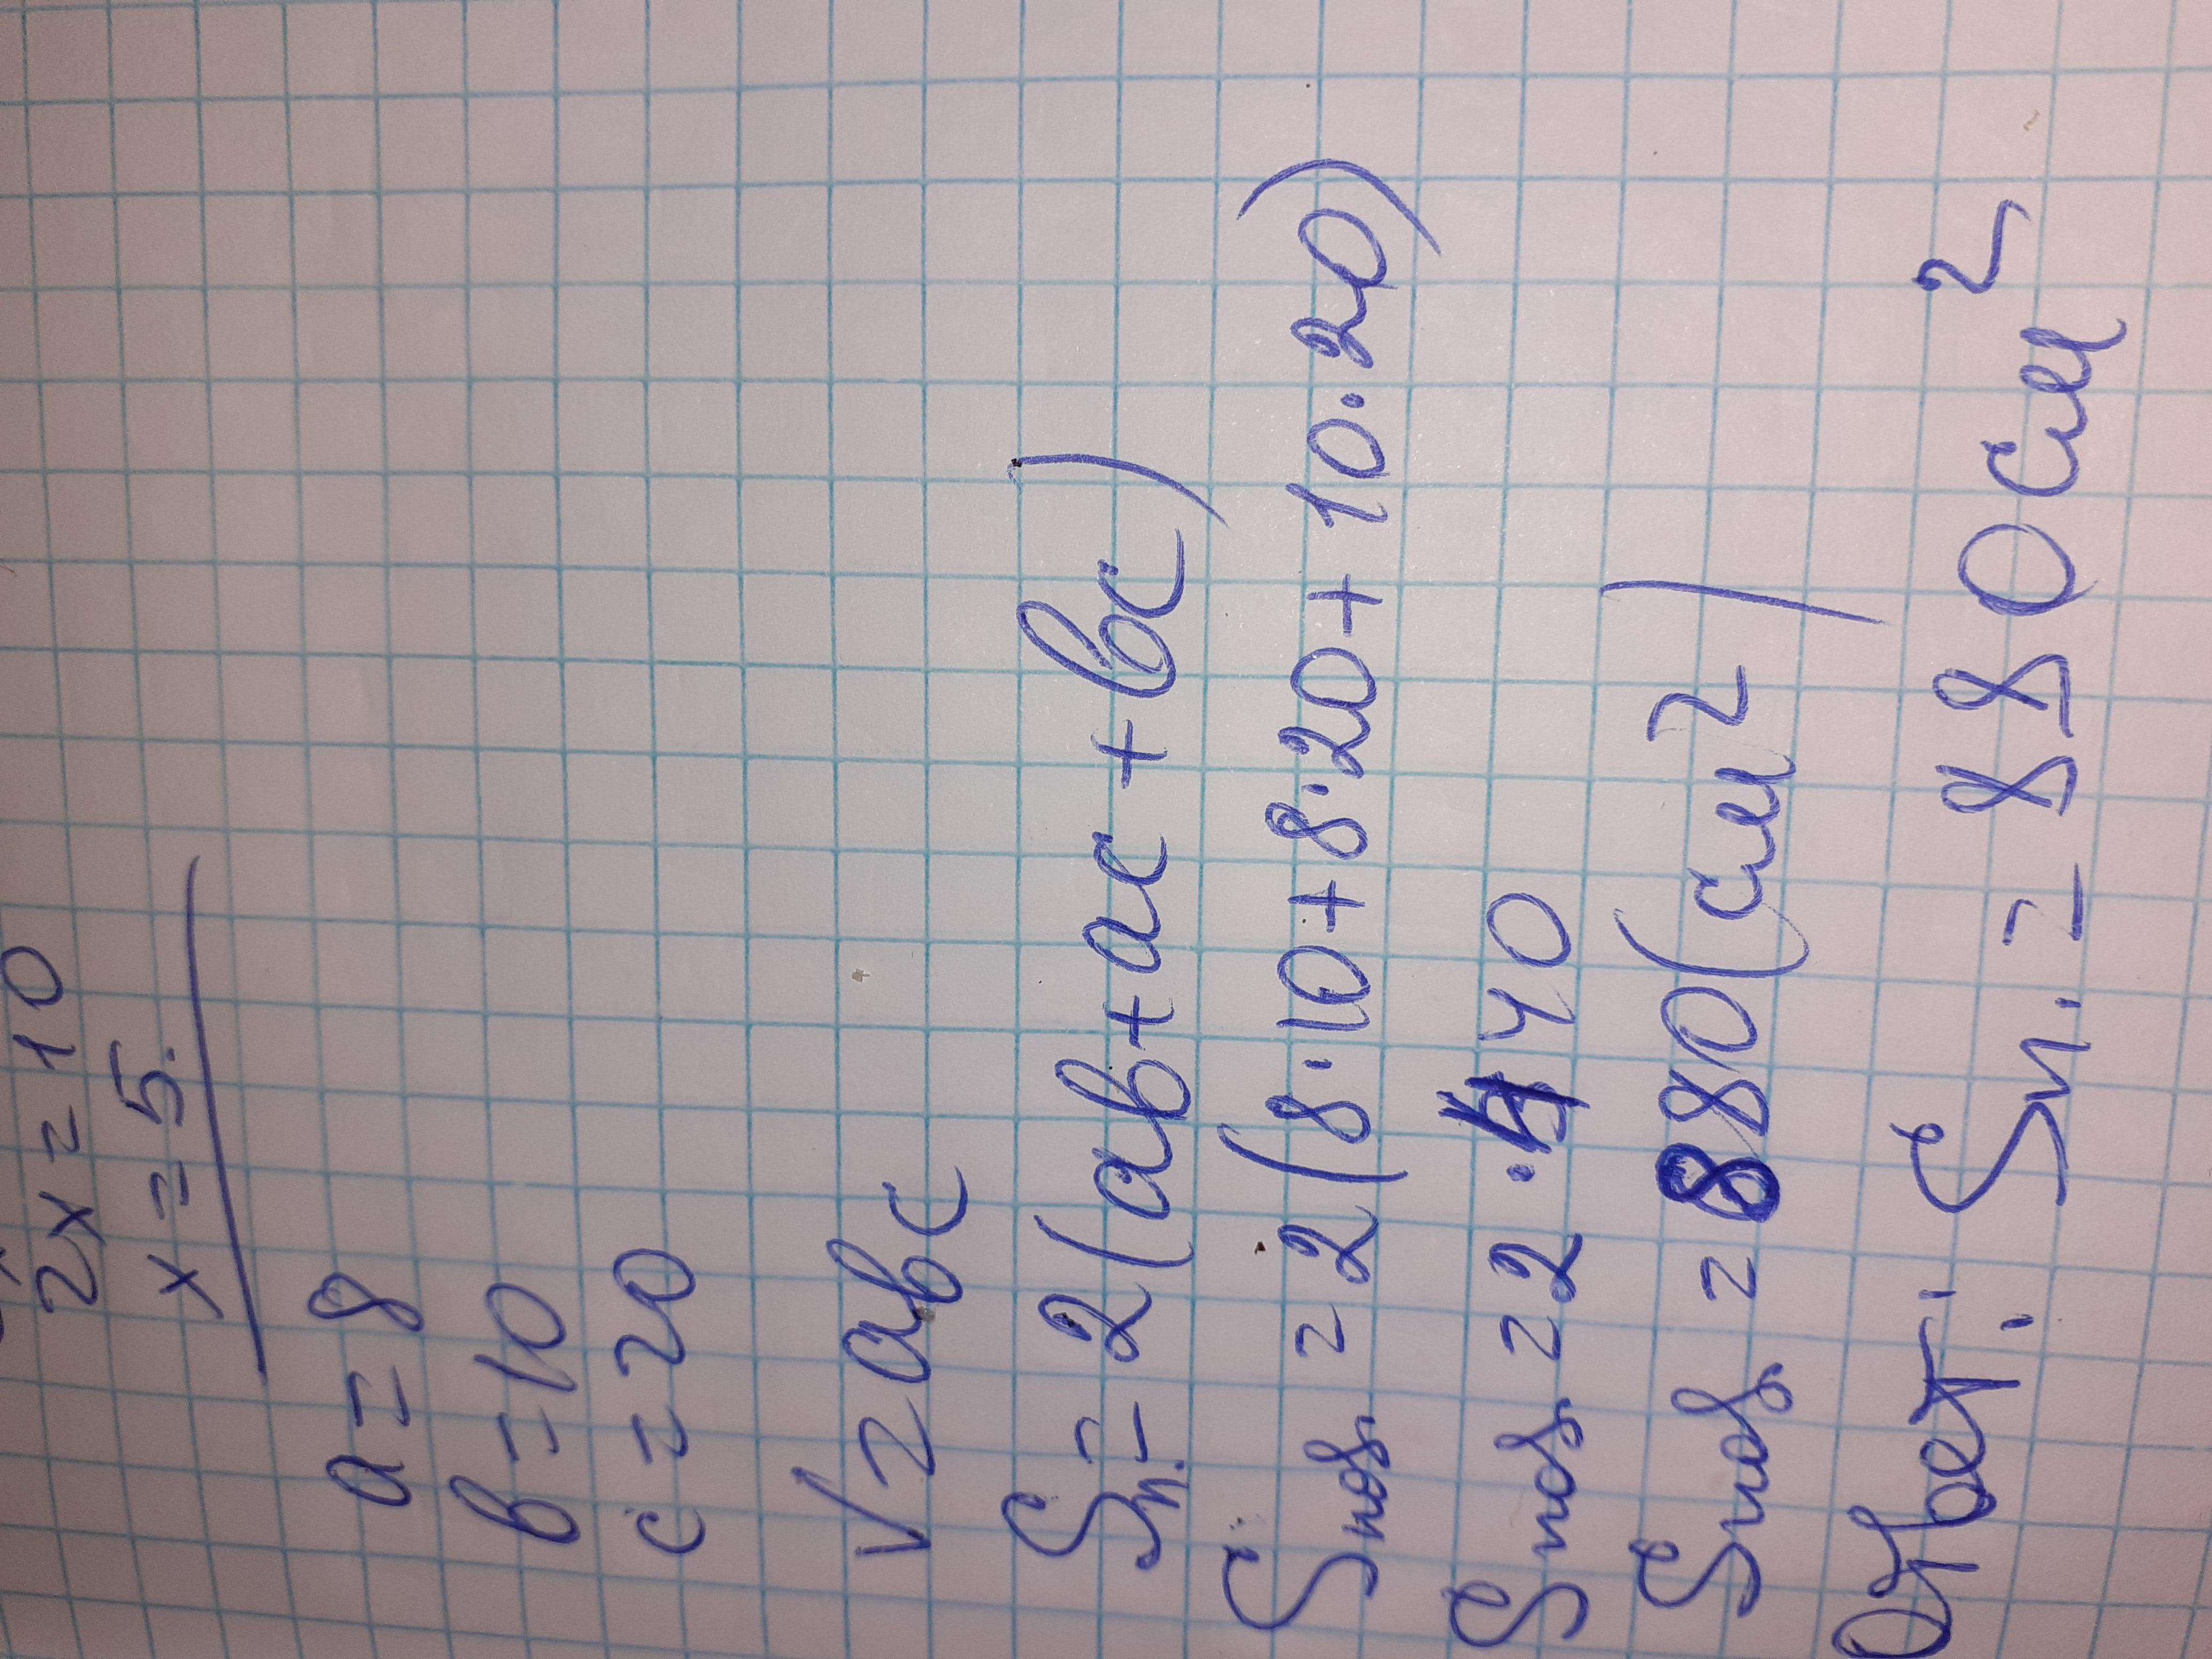 2x = 10
x = 5.
a = 8
в = 10
c = 20
V = aвc
Sп. = 2(aв + ac + вc)
Sпов. = 2(8·10 + 8·20 + 10·20)
Sпов. = 2·440
Sпов. = 880(см²)
Ответ: Sп. = 880см²